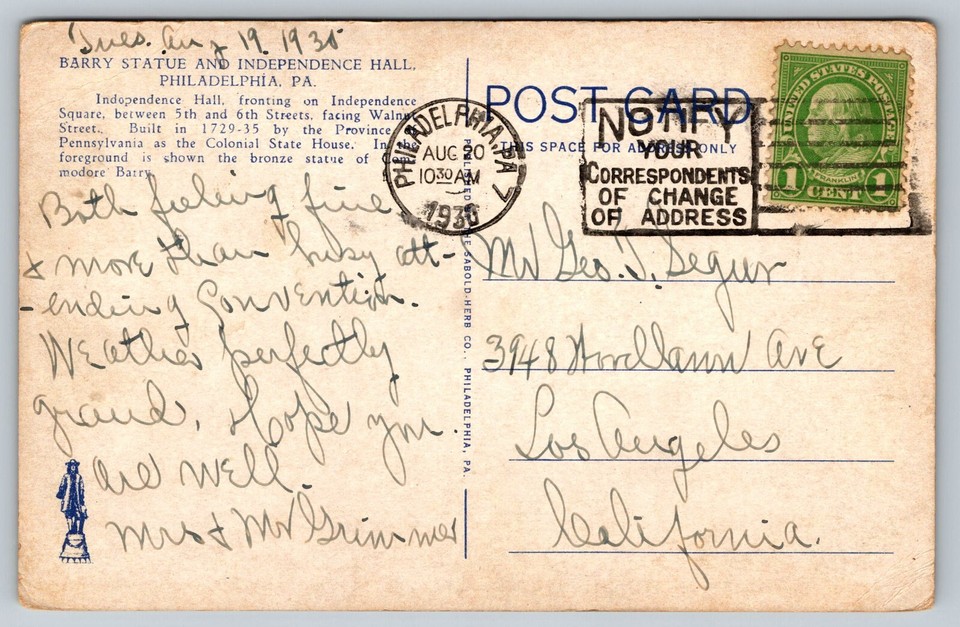 Tues. Aug 19, 1930
BARRY STATUE AND INDEPENDENCE HALL,
PHILADELPHIA, PA.
Independence Hall, fronting on Independence
Square, between 5th and 6th Streets, facing Walnut
Street. Built in 1729-35 by the Province
Pennsylvania as the Colonial State House. In the
foreground is shown the bronze statue of
modore Barry.
Both feeling fine
& more than busy att-
-ending Convention.
Weather perfectly
grand. Hope you
are well.
Mrs & Mr Grimmer
PUBLISHED THE SABOLD-HERB CO., PHILADELPHIA, PA.
POST CARD
THIS SPACE FOR ADDRESS ONLY
PHILADELPHIA, PA. 7
AUG 20
10 30 AM
1930
NOTIFY
YOUR
CORRESPONDENTS
OF CHANGE
OF ADDRESS
UNITED STATES POSTAGE
FRANKLIN
1 CENT 1
Mr Geo. J. Segur
3948 Ave
Los Angeles
California.